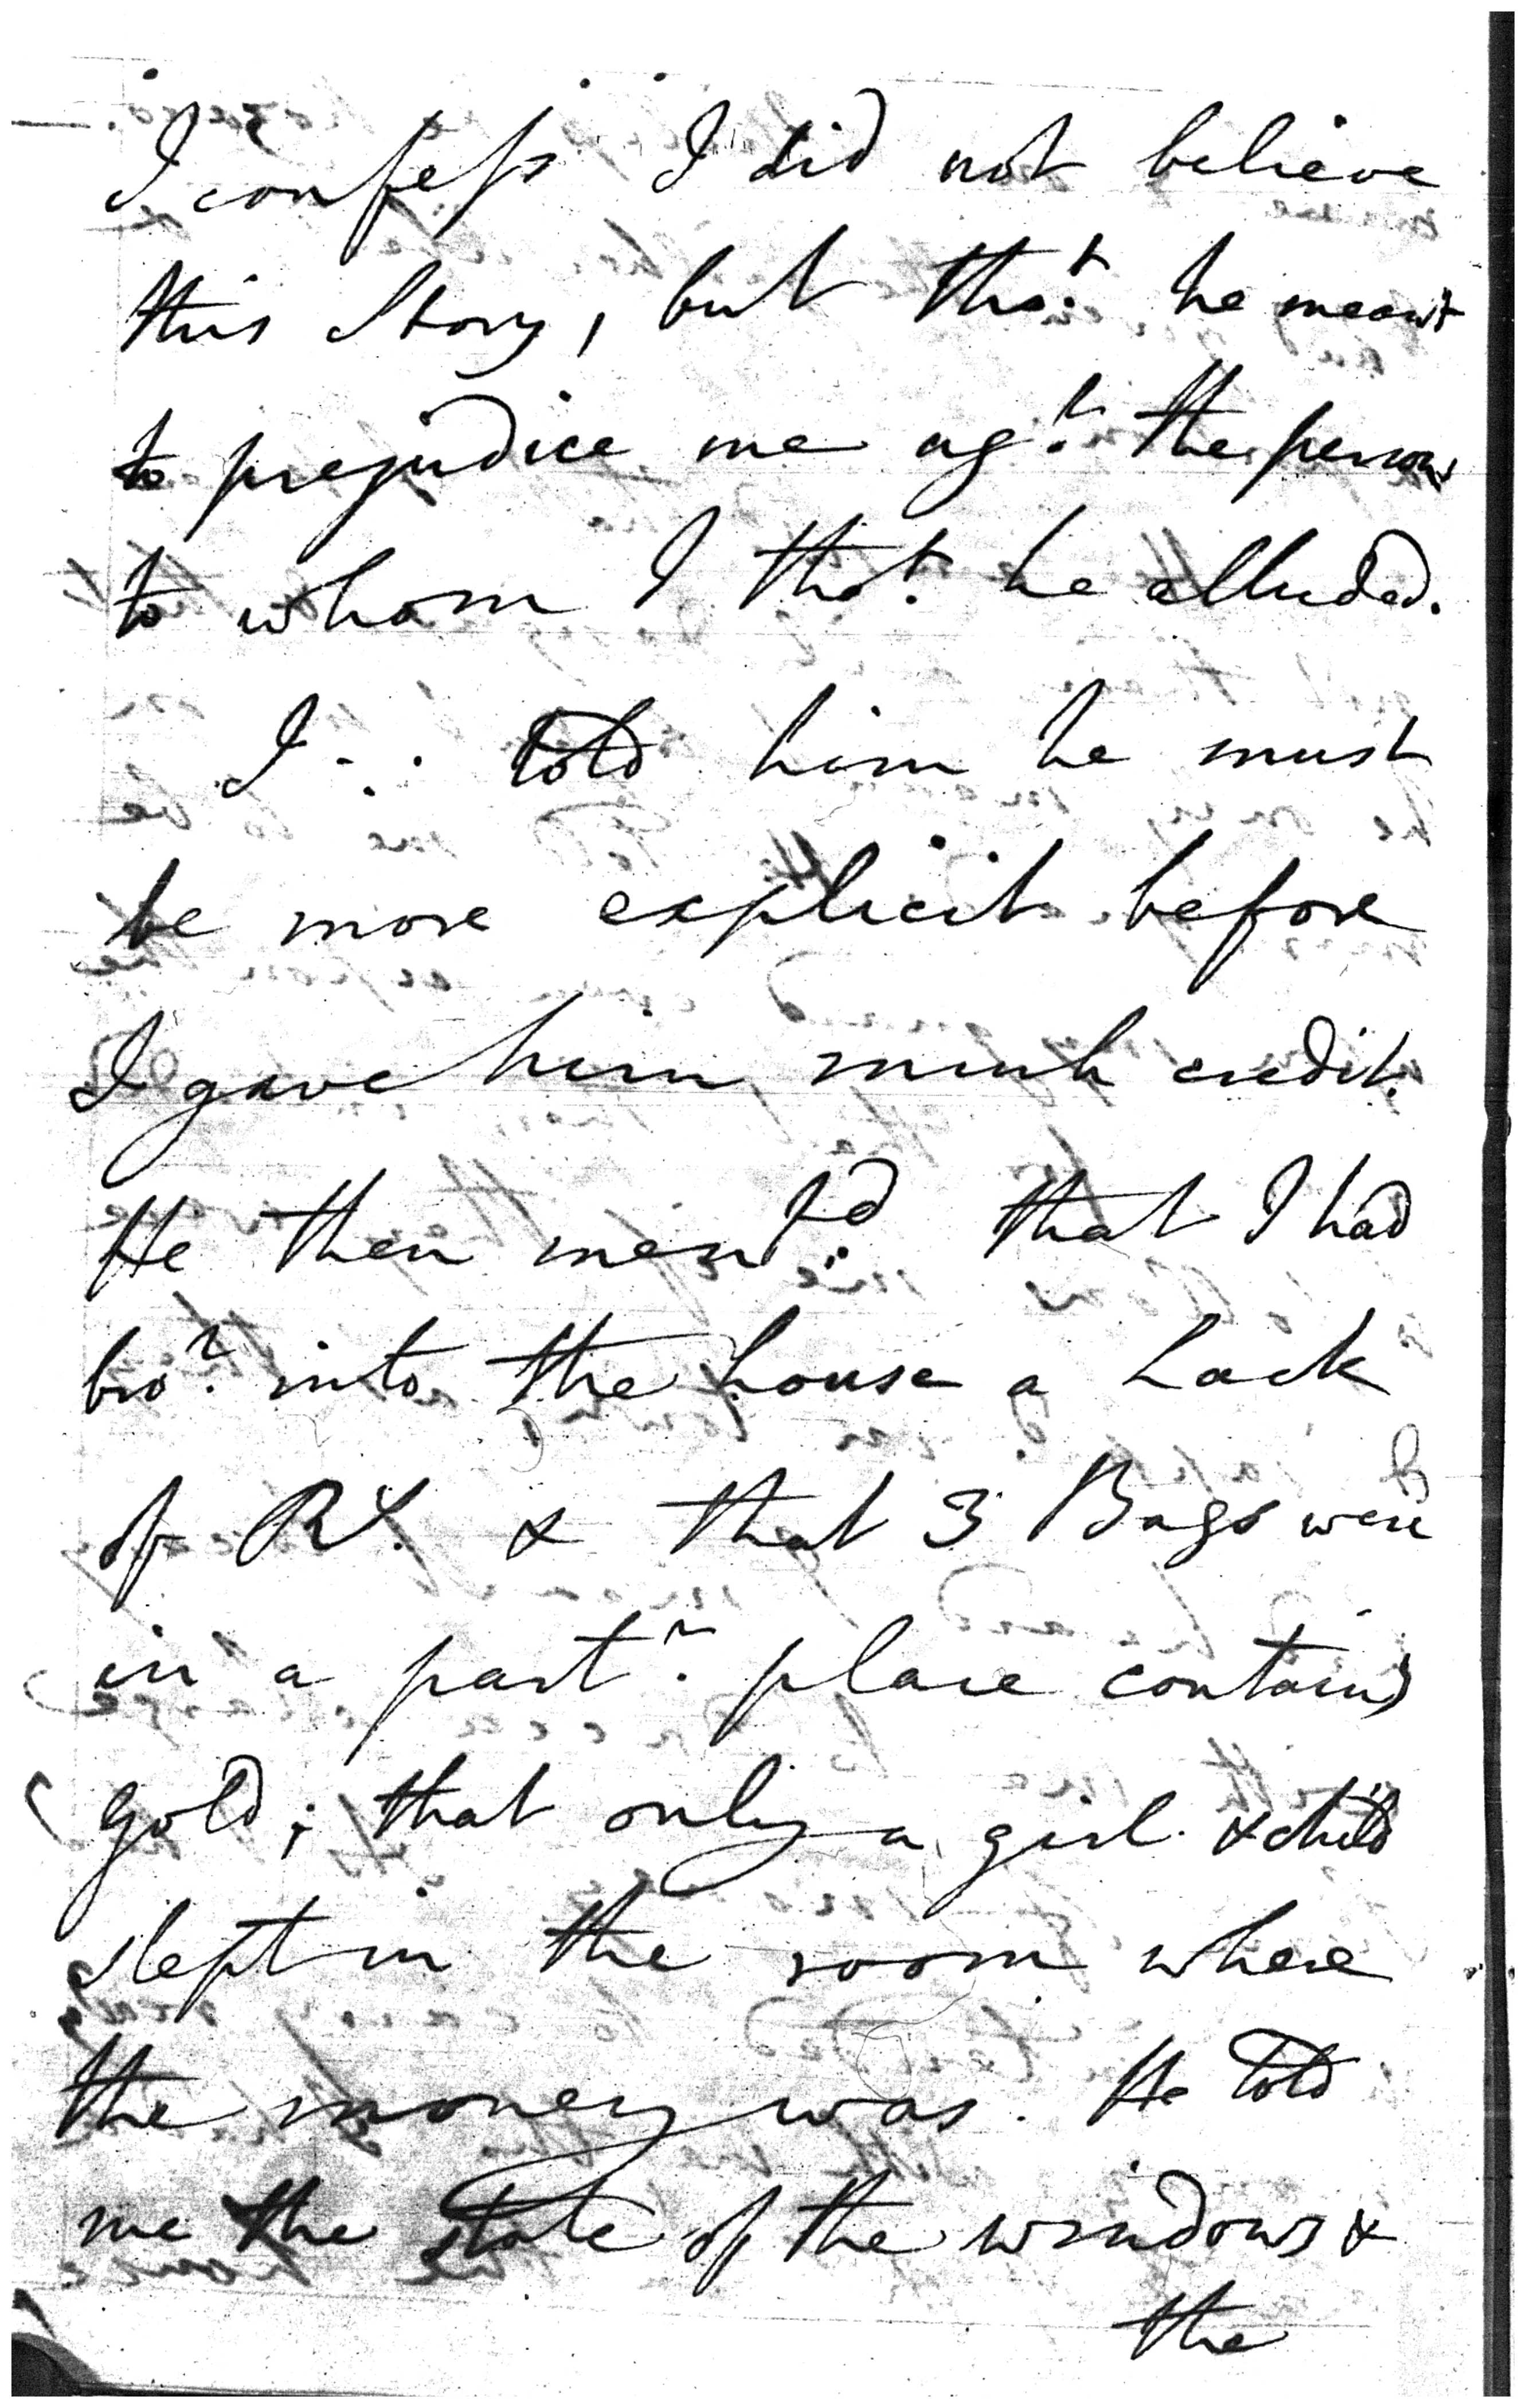 I confess I did not believe
this Story, but tho.t he meant
to prejudice me ag.t the persons
to whom I tho.t he alluded.
I ∴ told him he must
be more explicit before
I gave him much credit.
He then ment.d that I had
bro.t into the house a Lack
of R.s & that 3 Bags were
in a part.r place contain'g
gold; that only a girl & child
slept in the room where
the money was. He told
me the state of the windows &
the